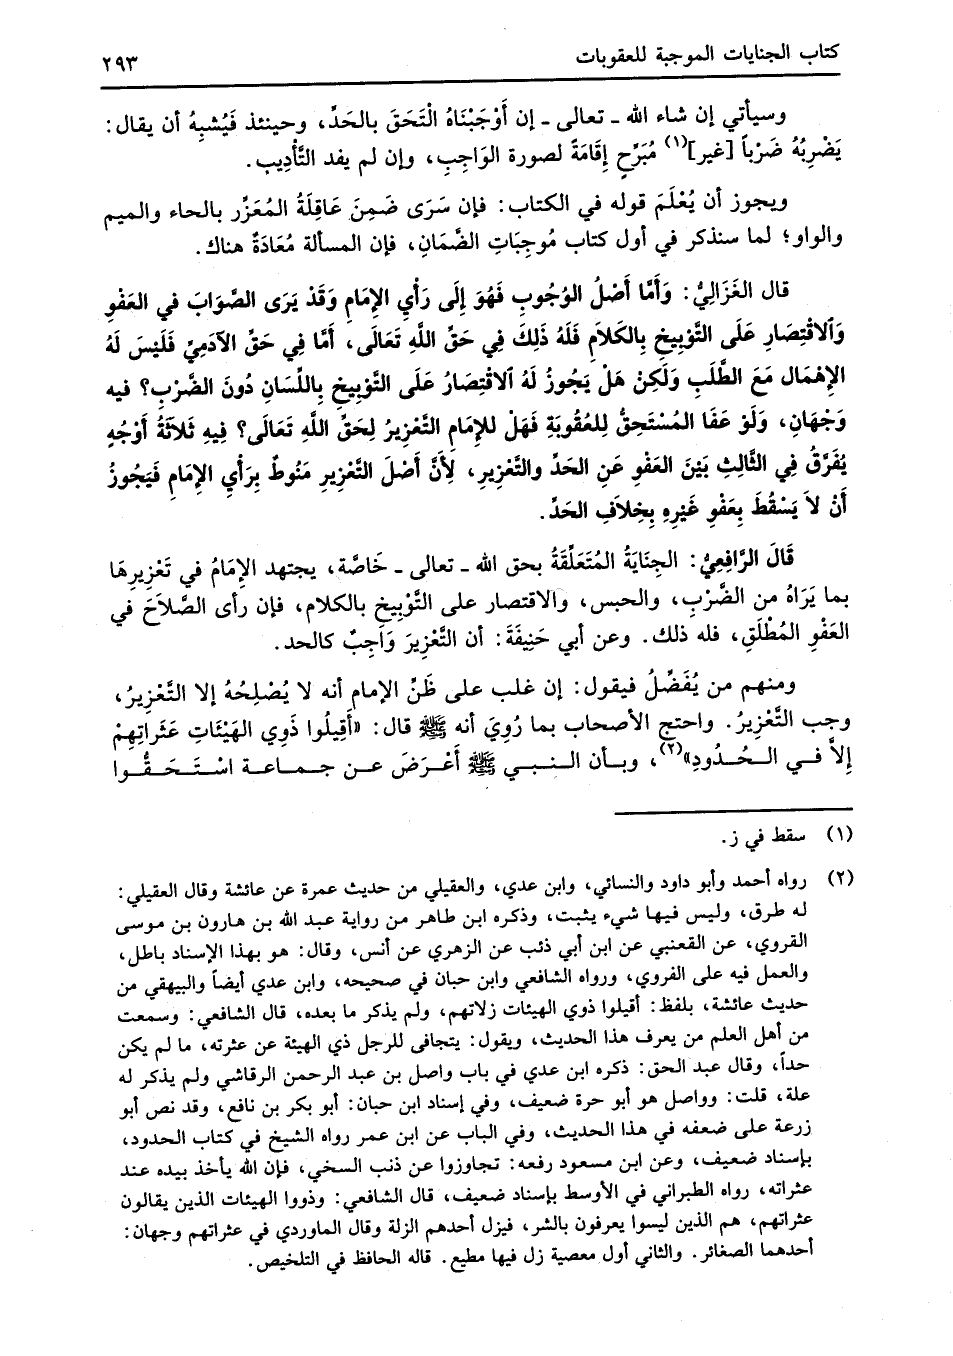 كتاب الجنايات الموجبة للعقوبات
٢٩٣
وسيأتي إن شاء الله ـ تعالى ـ إن أَوْجَبْنَاهُ الْتَحَقَ بالحَدِّ، وحينئذ فَيُشبِهُ أن يقال:
يَضْرِبُهُ ضَرْباً [غير](١) مُبَرِّحٍ إِقَامَةً لصورة الوَاجِبِ، وإن لم يفد التَّأْدِيب.
ويجوز أن يُعْلَمَ قوله في الكتاب: فإن سَرَى ضَمِنَ عَاقِلَةُ المُعَزِّرِ بالحاء والميم
والواو؛ لما سنذكر في أول كتاب مُوجِبَاتِ الضَّمَانِ، فإن المسألة مُعَادَةٌ هناك.
قال الغَزَالِيُّ: وَأَمَّا أَصْلُ الوُجُوبِ فَهُوَ إِلَى رَأْيِ الإِمَامِ وَقَدْ يَرَى الصَّوَابَ في العَفْوِ
وَٱلاقْتِصَارِ عَلَى التَّوْبِيخِ بِالكَلَامِ فَلَهُ ذَلِكَ فِي حَقِّ اللَّهِ تَعَالَى، أَمَّا فِي حَقِّ الآدَمِيِّ فَلَيْسَ لَهُ
الإِهْمَال مَعَ الطَّلَبِ وَلَكِنْ هَلْ يَجُوزُ لَهُ ٱلاقْتِصَارُ عَلَى التَّوْبِيخِ بِاللِّسَانِ دُونَ الضَّرْبِ؟ فيه
وَجْهَانِ، وَلَوْ عَفَا المُسْتَحِقُّ لِلعُقُوبَةِ فَهَلْ للإِمَامِ التَّعْزِيرُ لِحَقِّ اللَّهِ تَعَالَى؟ فِيهِ ثَلَاثَةُ أَوْجُهٍ
يُفَرَّقُ فِي الثَّالِثِ بَيْنَ العَفْوِ عَنِ الحَدِّ والتَّعْزِيرِ، لِأَنَّ أَصْلَ التَّعْزِيرِ مَنُوطٌ بِرَأْيِ الإِمَامِ فَيَجُوزُ
أَنْ لاَ يَسْقُطَ بِعَفْوِ غَيْرِهِ بِخِلاَفِ الحَدِّ.
قَالَ الرَّافِعِيُّ: الجِنَايَةُ المُتَعَلِّقَةُ بحق الله ـ تعالى ـ خَاصَّة، يجتهد الإِمَامُ في تَعْزِيرِهَا
بما يَرَاهُ من الضَّرْبِ، والحبس، والاقتصار على التَّوْبِيخِ بالكلام، فإن رأى الصَّلَاحَ في
العَفْوِ المُطْلَقِ، فله ذلك. وعن أبي حَنِيفَةَ: أن التَّعْزِيرَ وَاجِبٌ كالحد.
ومنهم من يُفَصِّلُ فيقول: إن غلب على ظَنِّ الإمام أنه لا يُصْلِحُهُ إلا التَّعْزِيرُ،
وجب التَّعْزِيرُ. واحتج الأصحاب بما رُوِيَ أنه ﷺ قال: «أَقِيلُوا ذَوِي الهَيْئَاتِ عَثَرَاتِهِمْ
إِلاَّ فــي الــحُــدُودِ»(٢)، وبــأن الــنــبــي ﷺ أَعْــرَضَ عــن جــمــاعــة اسْــتَــحَــقُّــوا
(١) سقط في ز.
(٢) رواه أحمد وأبو داود والنسائي، وابن عدي، والعقيلي من حديث عمرة عن عائشة وقال العقيلي:
له طرق، وليس فيها شيء يثبت، وذكره ابن طاهر من رواية عبد الله بن هارون بن موسى
القروي، عن القعنبي عن ابن أبي ذئب عن الزهري عن أنس، وقال: هو بهذا الإسناد باطل،
والعمل فيه على الفروي، ورواه الشافعي وابن حبان في صحيحه، وابن عدي أيضاً والبيهقي من
حديث عائشة، بلفظ: أقيلوا ذوي الهيئات زلاتهم، ولم يذكر ما بعده، قال الشافعي: وسمعت
من أهل العلم من يعرف هذا الحديث، ويقول: يتجافى للرجل ذي الهيئة عن عثرته، ما لم يكن
حداً، وقال عبد الحق: ذكره ابن عدي في باب واصل بن عبد الرحمن الرقاشي ولم يذكر له
علة، قلت: وواصل هو أبو حرة ضعيف، وفي إسناد ابن حبان: أبو بكر بن نافع، وقد نص أبو
زرعة على ضعفه في هذا الحديث، وفي الباب عن ابن عمر رواه الشيخ في كتاب الحدود،
بإسناد ضعيف، وعن ابن مسعود رفعه: تجاوزوا عن ذنب السخي، فإن الله يأخذ بيده عند
عثراته، رواه الطبراني في الأوسط بإسناد ضعيف، قال الشافعي: وذووا الهيئات الذين يقالون
عثراتهم، هم الذين ليسوا يعرفون بالشر، فيزل أحدهم الزلة وقال الماوردي في عثراتهم وجهان:
أحدهما الصغائر. والثاني أول معصية زل فيها مطيع. قاله الحافظ في التلخيص.